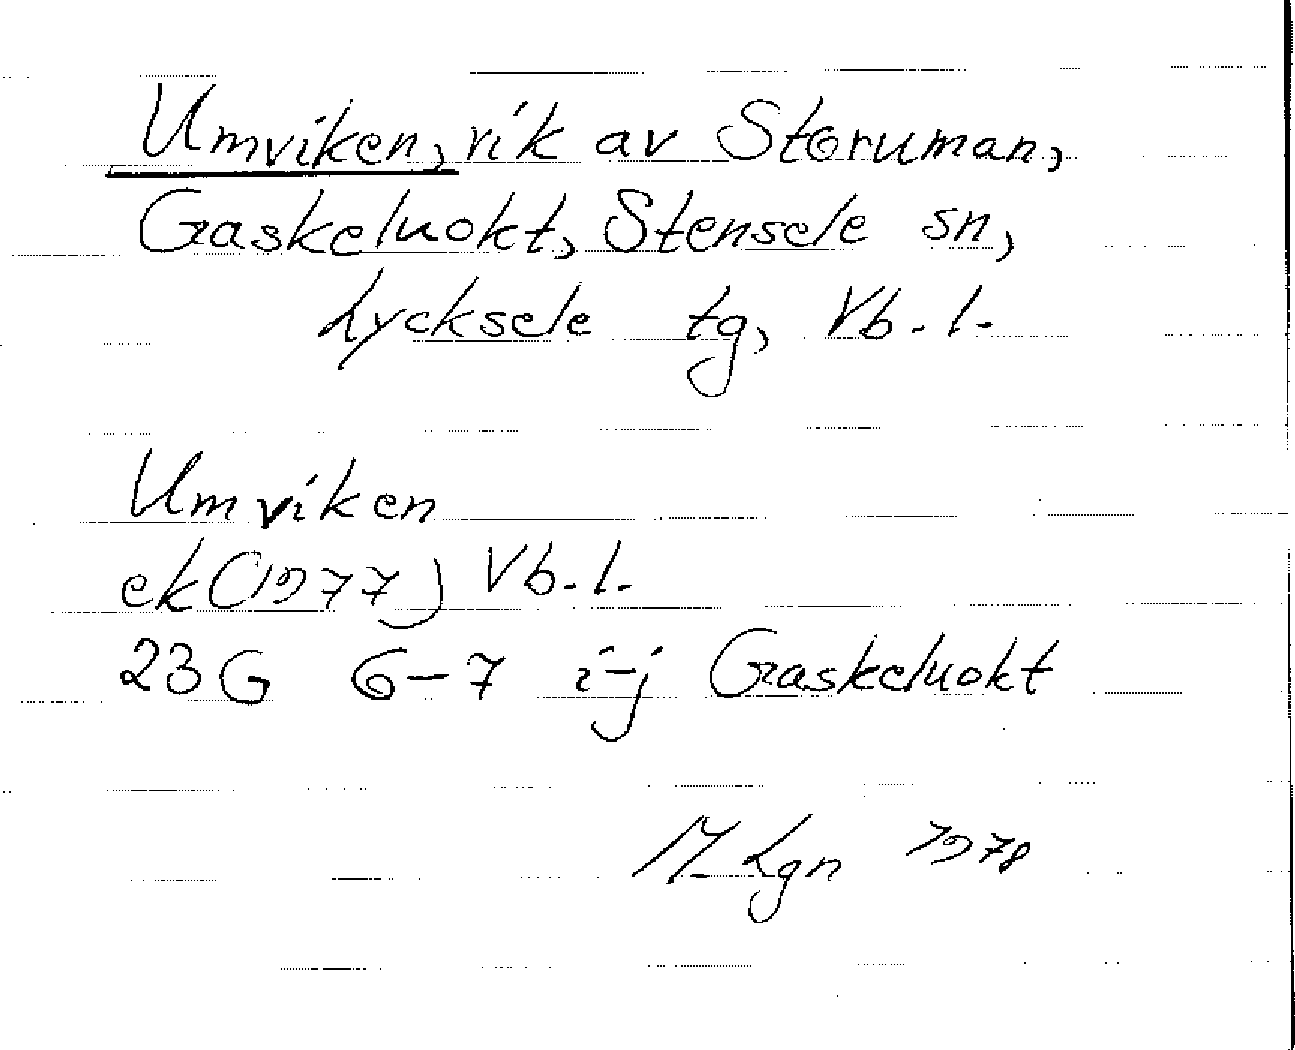 Umviken, vik av Storuman,
Gaskeluokt, Stensele sn,
Lycksele tg, Vb. l.
Umviken
ek(1977) Vb. l.
23G 6-7 i-j Gaskeluokt
M Lgn 1978